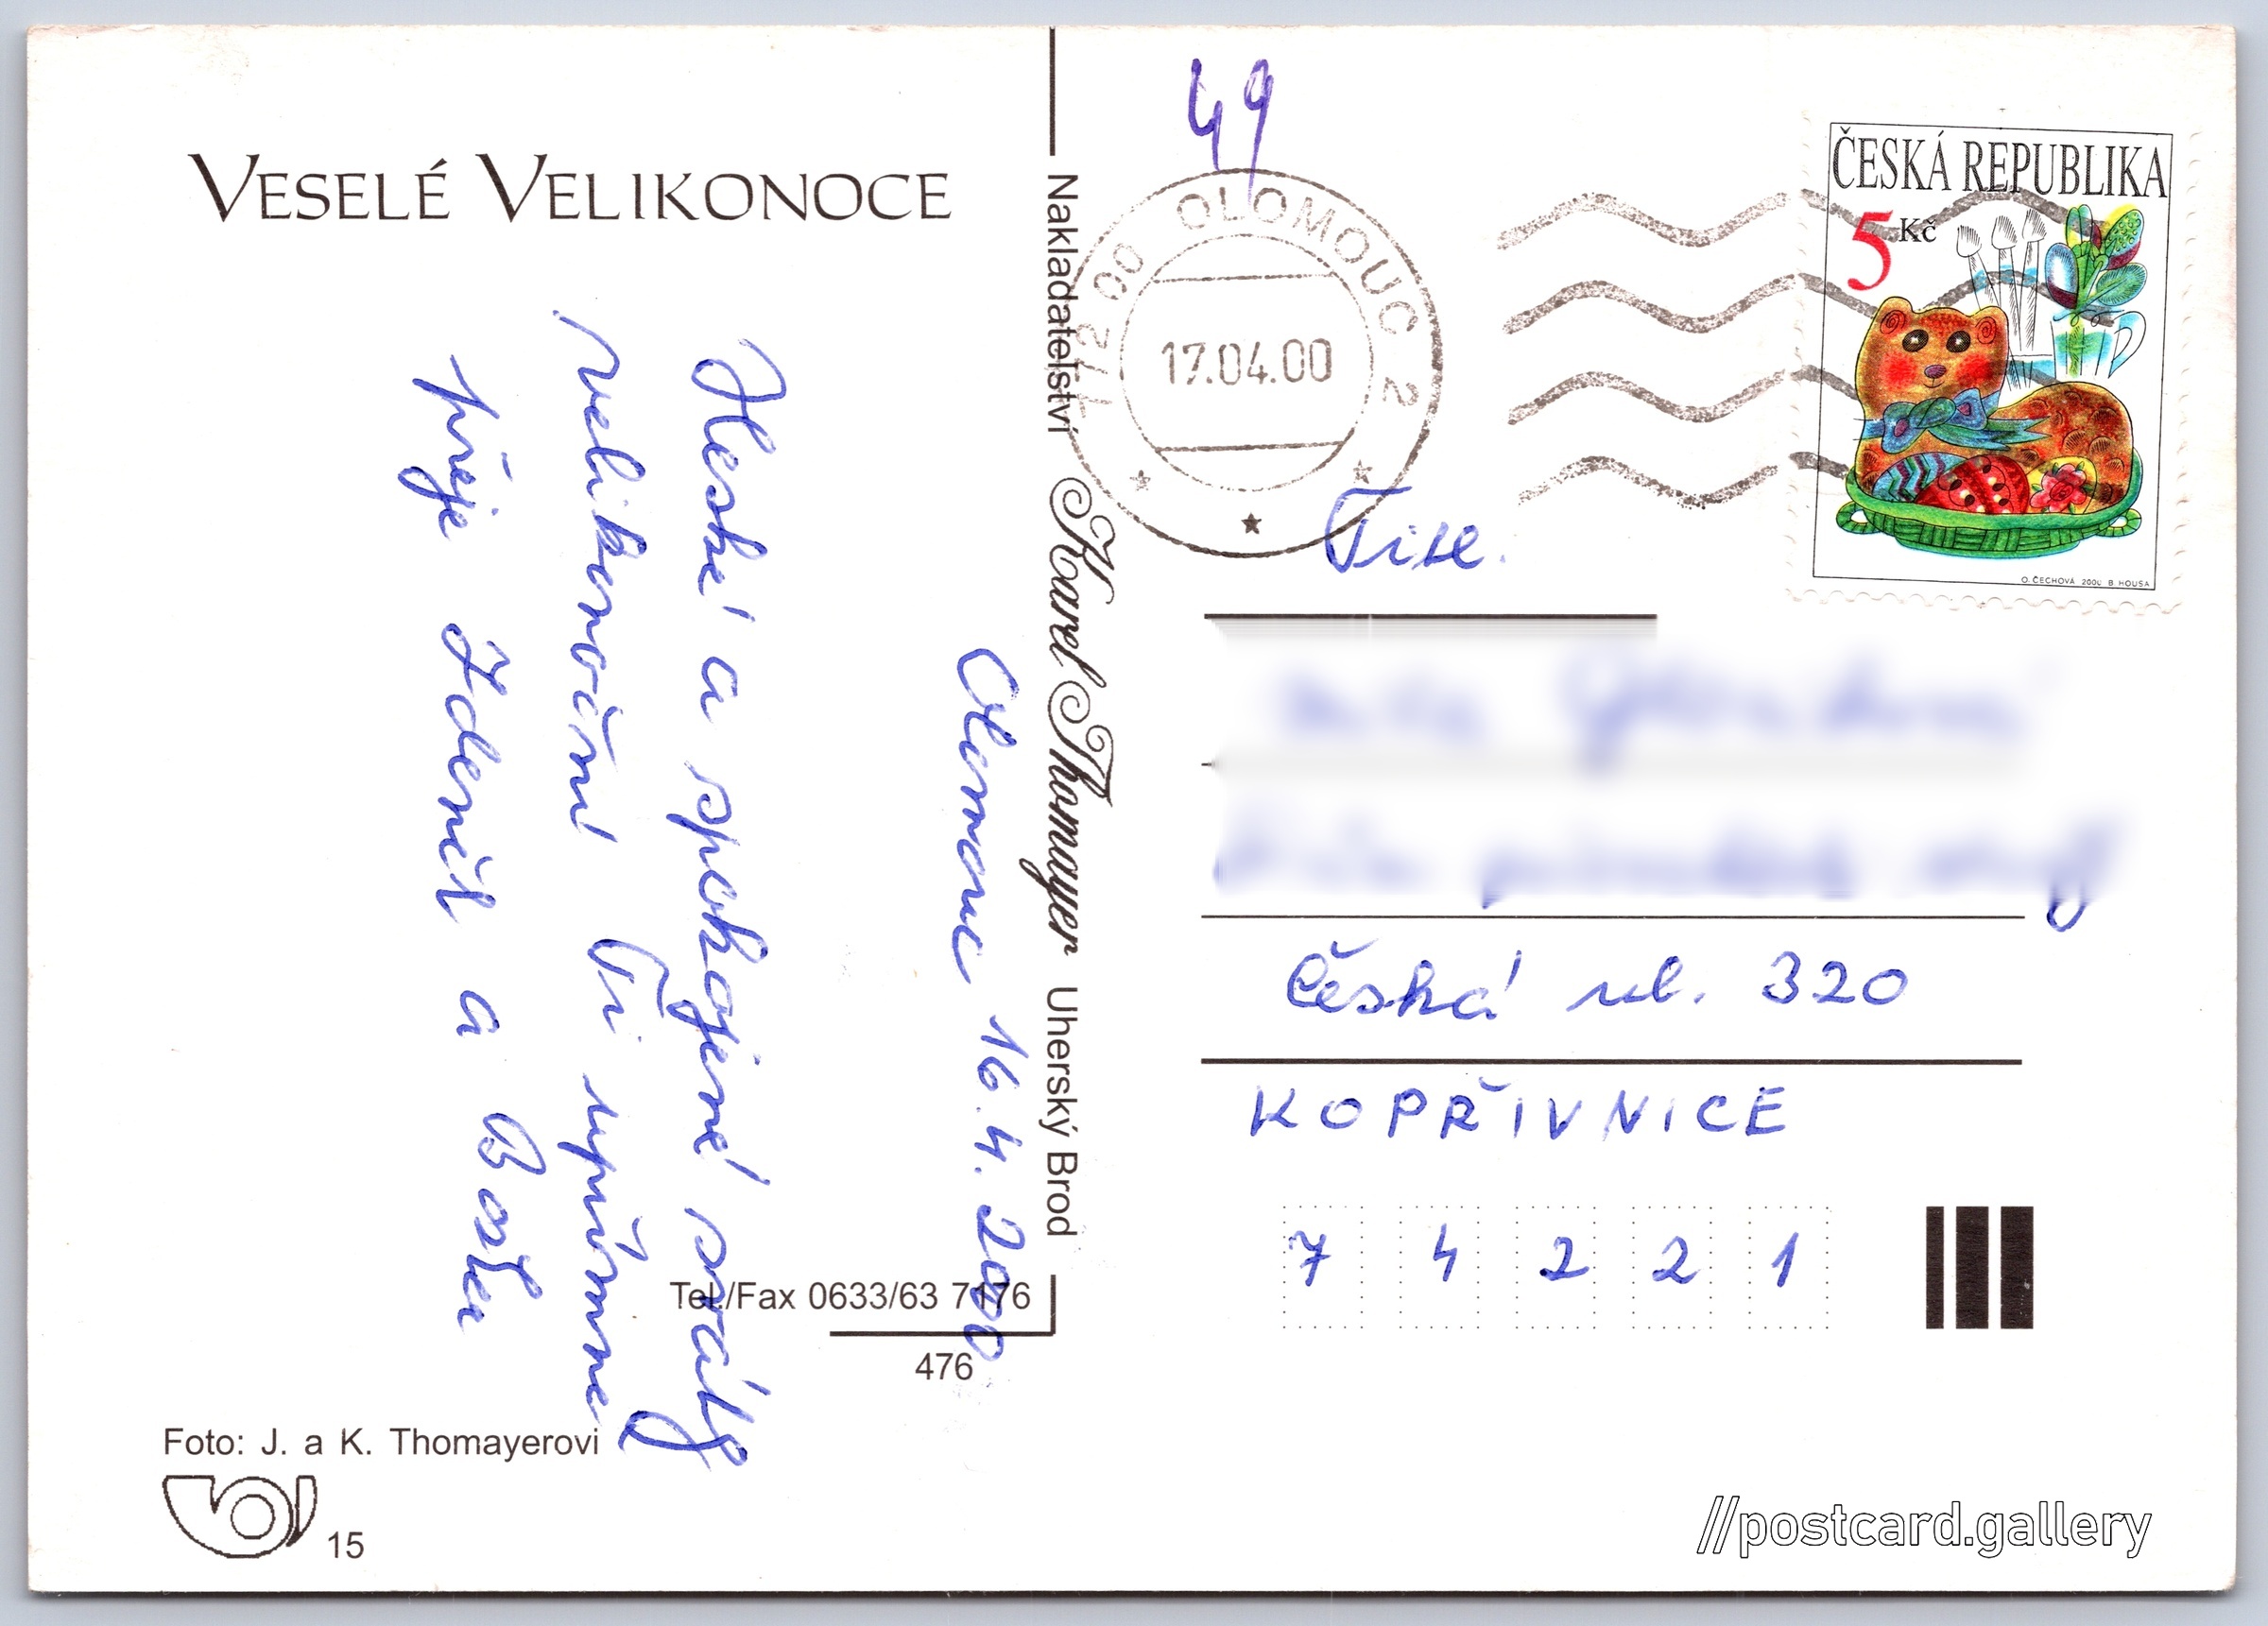 VESELÉ VELIKONOCE
Olomouc 16.4.2000
Hezké a spokojené prožití
velikonoční Ti upřímně
přeje Zdeněk a Božka
Foto: J. a K. Thomayerovi
15
Nakladatelství Karel Thomayer Uherský Brod
Tel./Fax 0633/63 7176
476
49
772 00 OLOMOUC 2
17.04.00
ČESKÁ REPUBLIKA
5 Kč
O. ČECHOVÁ 2000 B HOUSA
Česká ul. 320
KOPŘIVNICE
7 4 2 2 1
//postcard.gallery